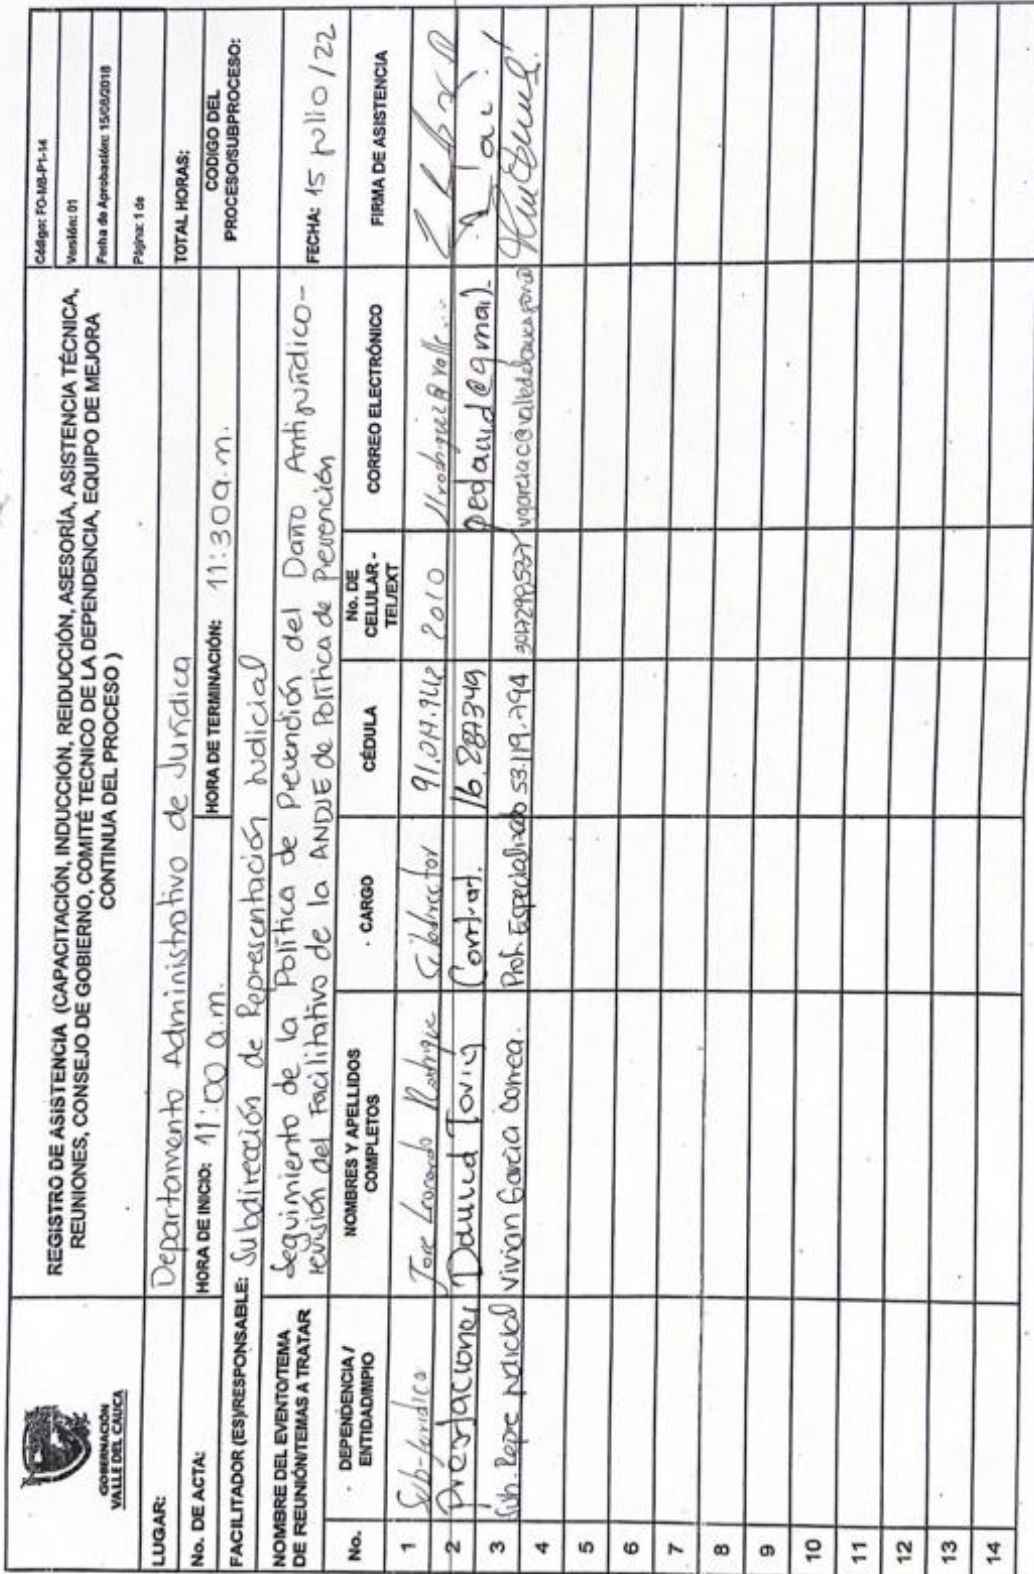 GOBERNACIÓN
VALLE DEL CAUCA
REGISTRO DE ASISTENCIA (CAPACITACIÓN, INDUCCIÓN, REIDUCCIÓN, ASESORÍA, ASISTENCIA TÉCNICA,
REUNIONES, CONSEJO DE GOBIERNO, COMITÉ TECNICO DE LA DEPENDENCIA, EQUIPO DE MEJORA
CONTINUA DEL PROCESO )
Código: FO-M8-P1-14
Versión: 01
Fecha de Aprobación: 15/08/2018
Página: 1 de
LUGAR: Departamento Administrativo de Jurídica
TOTAL HORAS:
No. DE ACTA:
HORA DE INICIO: 11:00 a.m.
HORA DE TERMINACIÓN: 11:30 a.m.
CODIGO DEL
PROCESO/SUBPROCESO:
FACILITADOR (ES)/RESPONSABLE: Subdirección de Representación Judicial
NOMBRE DEL EVENTO/TEMA
DE REUNIÓN/TEMAS A TRATAR
Seguimiento de la Política de Prevención del Daño Antijurídico-
revisión del Facilitativo de la ANDJE de Política de Prevención
FECHA: 15 julio/22
No. DEPENDENCIA / ENTIDAD/MPIO NOMBRES Y APELLIDOS COMPLETOS CARGO CÉDULA No. DE CELULAR - TEL/EXT CORREO ELECTRÓNICO FIRMA DE ASISTENCIA
1 Sub-Juridica Leonardo Subdirector 2010
2 Prestaciones David 16.287349
3 Sub. Repre Judicial Vivian Garcia Correa. Prof. Especializado 53.119.794
4
5
6
7
8
9
10
11
12
13
14